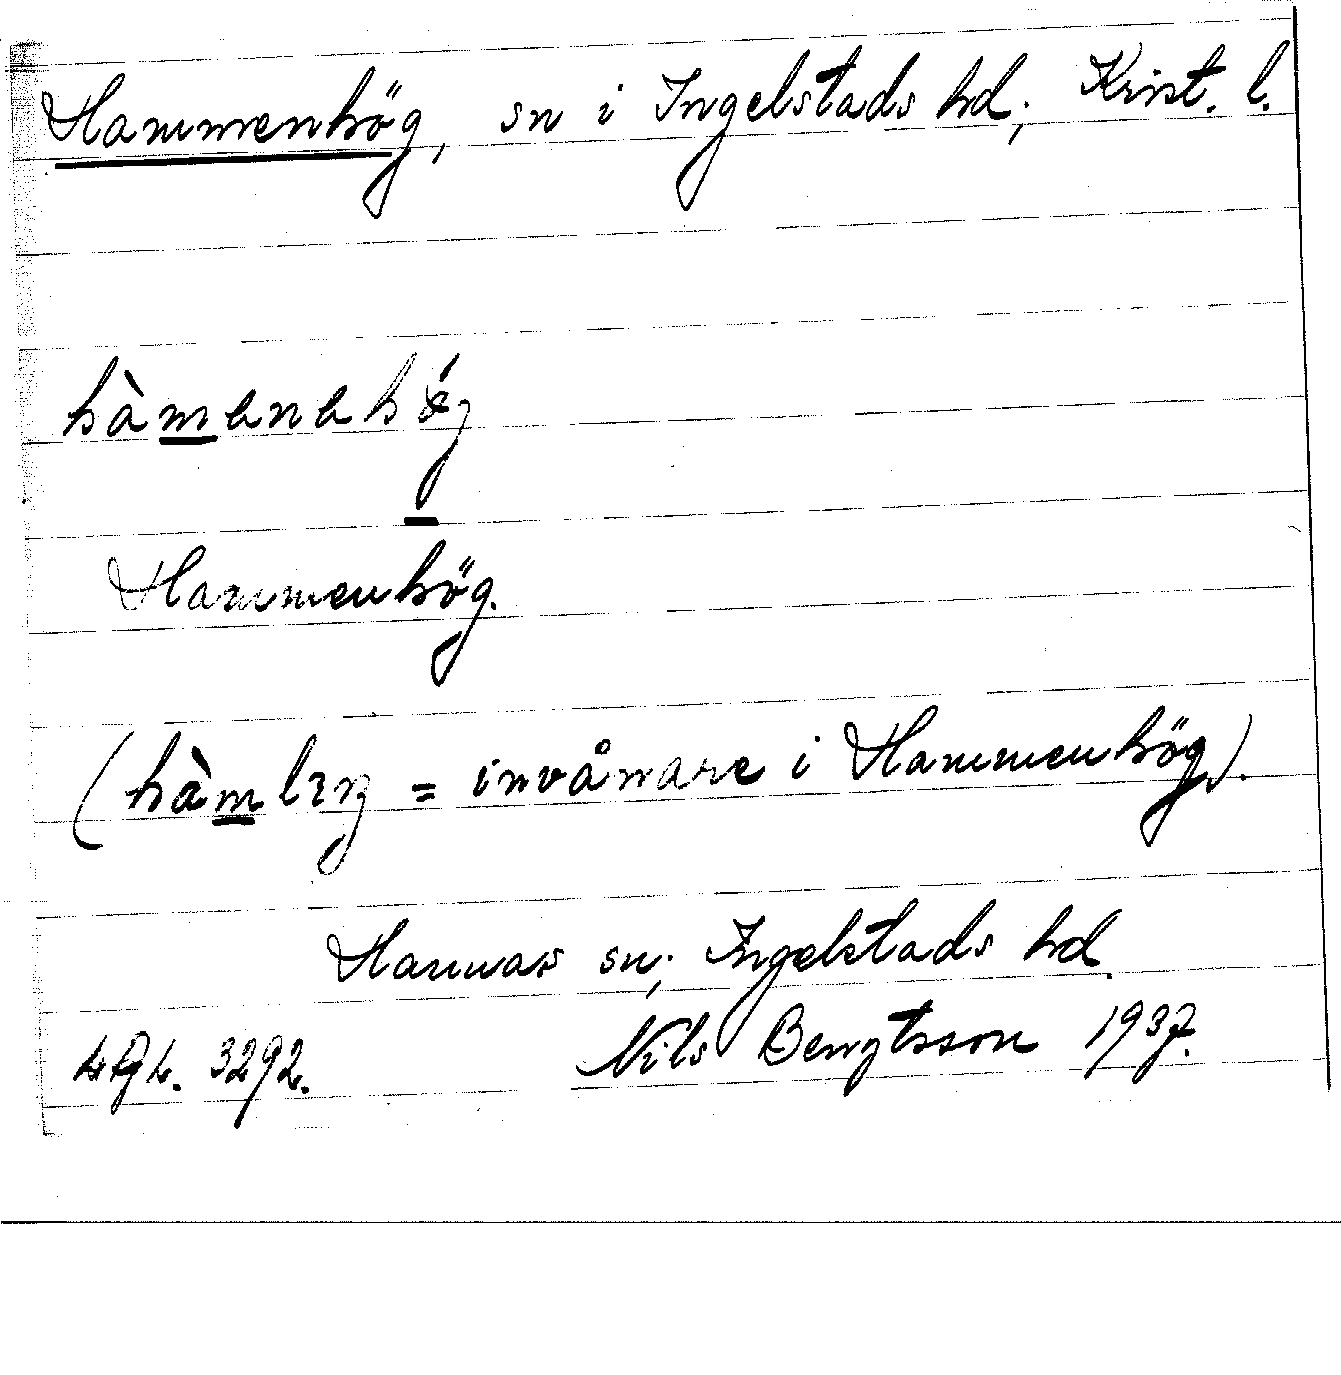 Hammenhög, sn i Ingelstads hd; Krist. l.
hàmenehǿg
Hammenhög.
(hàmlıŋ = invånare i Hammenhög).
Hannas sn; Ingelstads hd.
LAL. 3292. Nils Bengtsson 1937.